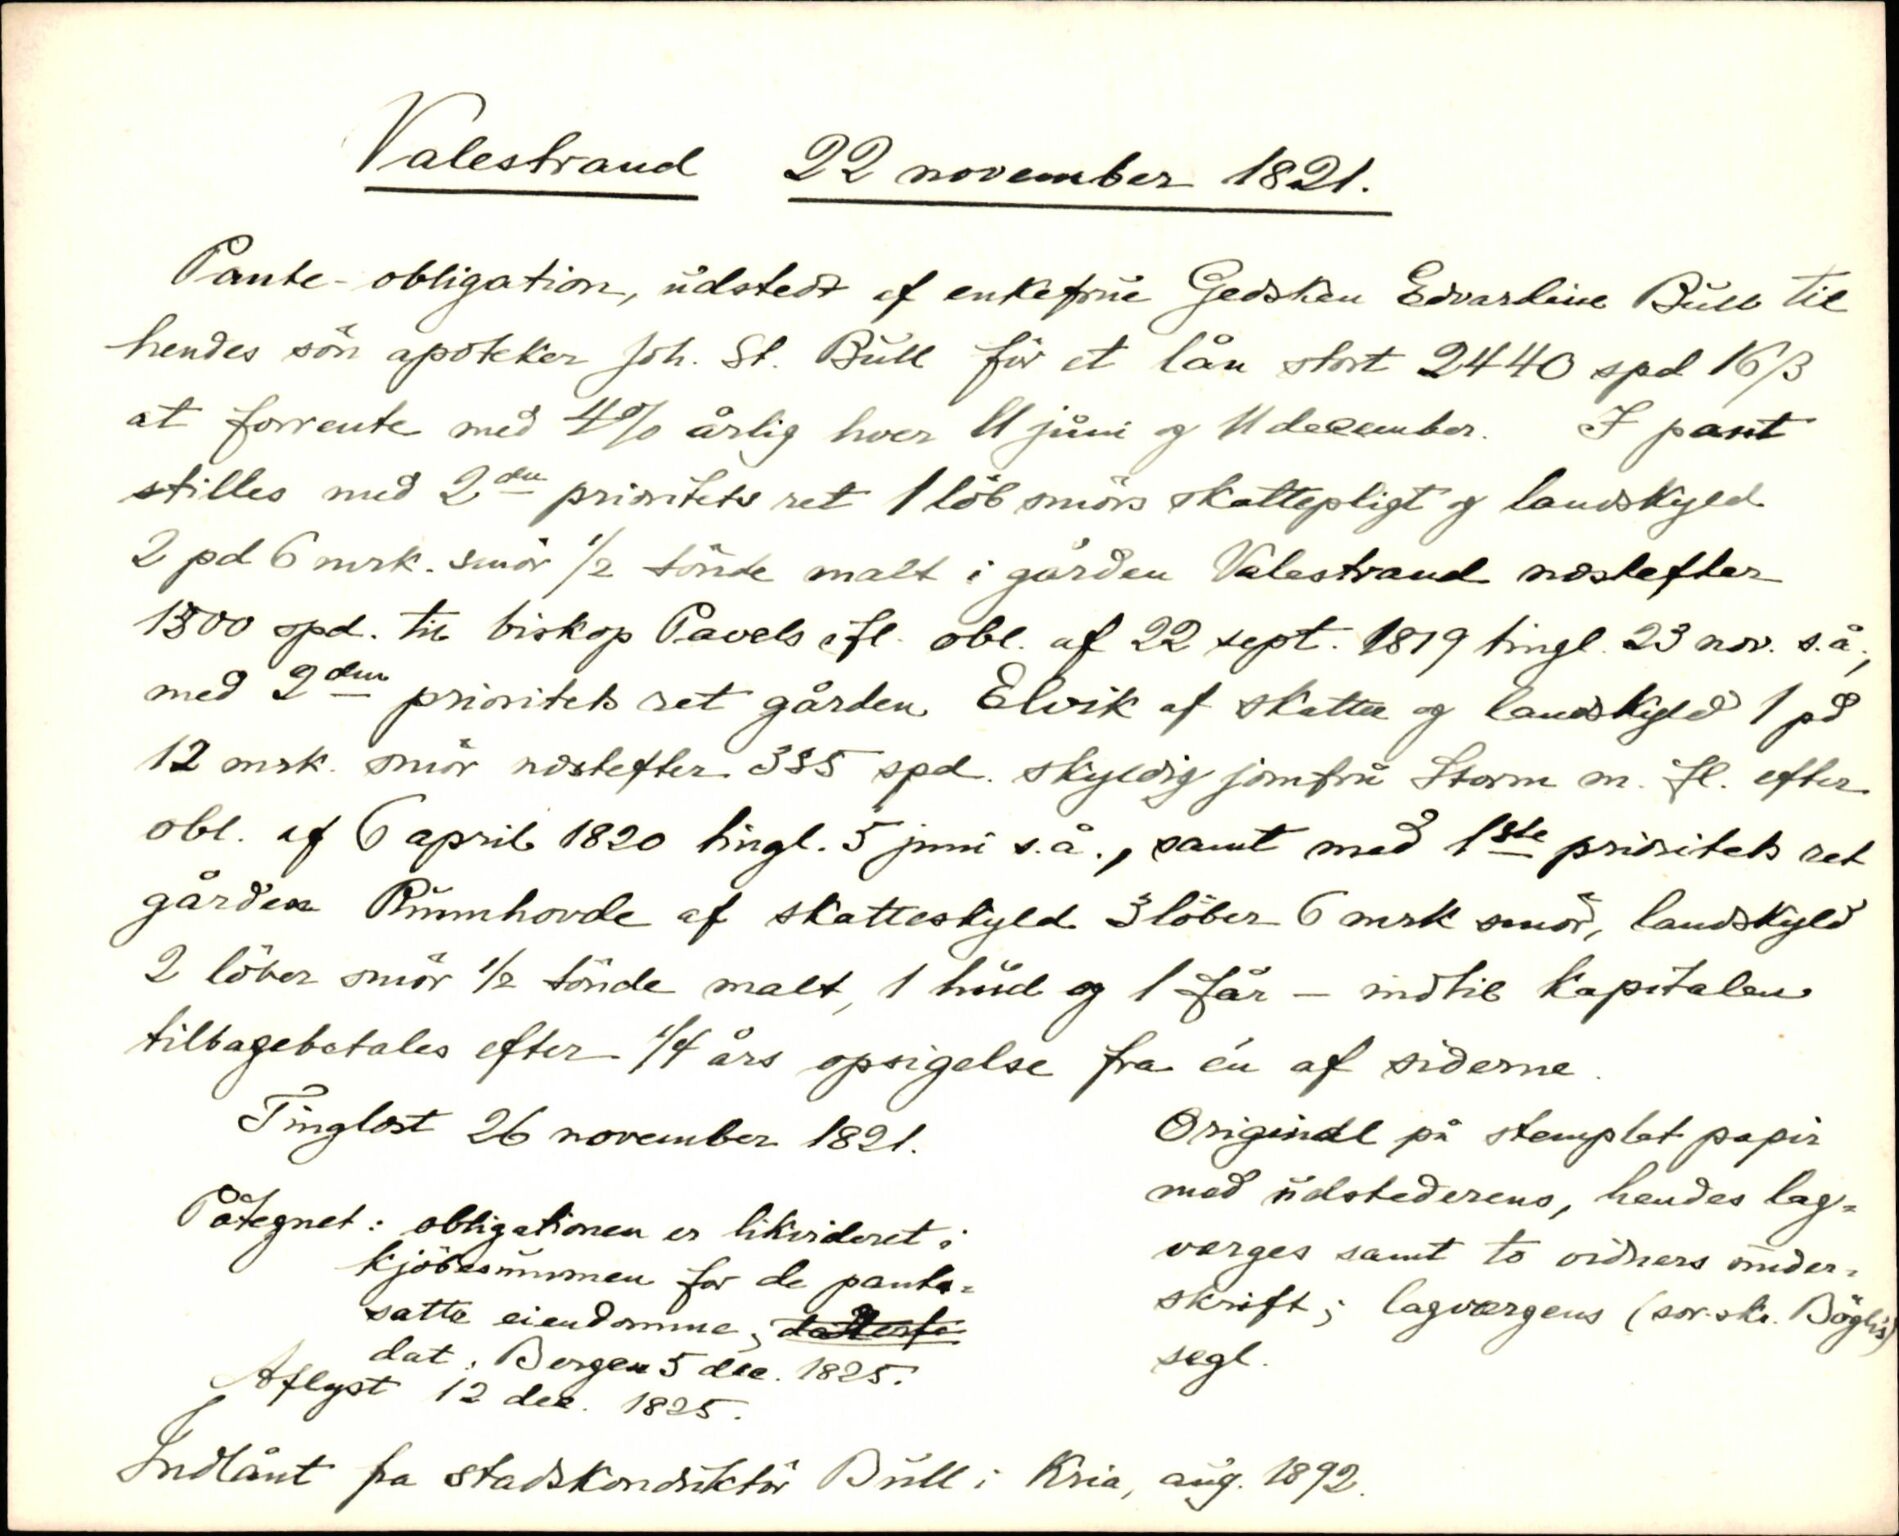 Valestrand 22 november 1821.
Pante-obligation, udstedt af enkefrue Gedsken Edvardine Bull til
hendes sön apoteker Joh. St. Bull for et lån stort 2440 spd 16 β
at forrente med 4% årlig hver 11 juni og 11 december. I pant
stilles med 2den prioritets ret 1 löb smörs skattepligt og landskyld
2 pd 6 mrk. smör 1/2 tönde malt i gården Valestrand næstefter
1300 spd. til biskop Pavels ifl. obl. af 22 sept. 1819 tingl. 23 nov. s.å.,
med 2den prioritets ret gården Elvik af skatte og landskyld 1 pd
12 mrk. smör næstefter 335 spd. skyldig jomfru Storm m. fl. efter
obl. af 6 april 1820 tingl. 5 juni s.å., samt med 1ste prioritets ret
gården Rimmhovde af skatteskyld 3 löber 6 mrk smör, landskyld
2 löber smör 1/2 tönde malt, 1 hud og 1 får – indtil kapitalen
tilbagebetales efter 1/4 års opsigelse fra én af siderne.
Tinglæst 26 november 1821.
Påtegnet: obligationen er likvideret i
kjöbesummen for de pante-
satte eiendomme,
dat. Bergen 5 dec. 1825.
Aflyst 12 dec. 1825.
Original på stemplet papir
med udstederens, hendes lag-
værges samt to vidners under-
skrift; lagværgens (sor.skr. Böghs)
segl.
Indlånt fra stadskonduktör Bull i Kria, aug. 1892.